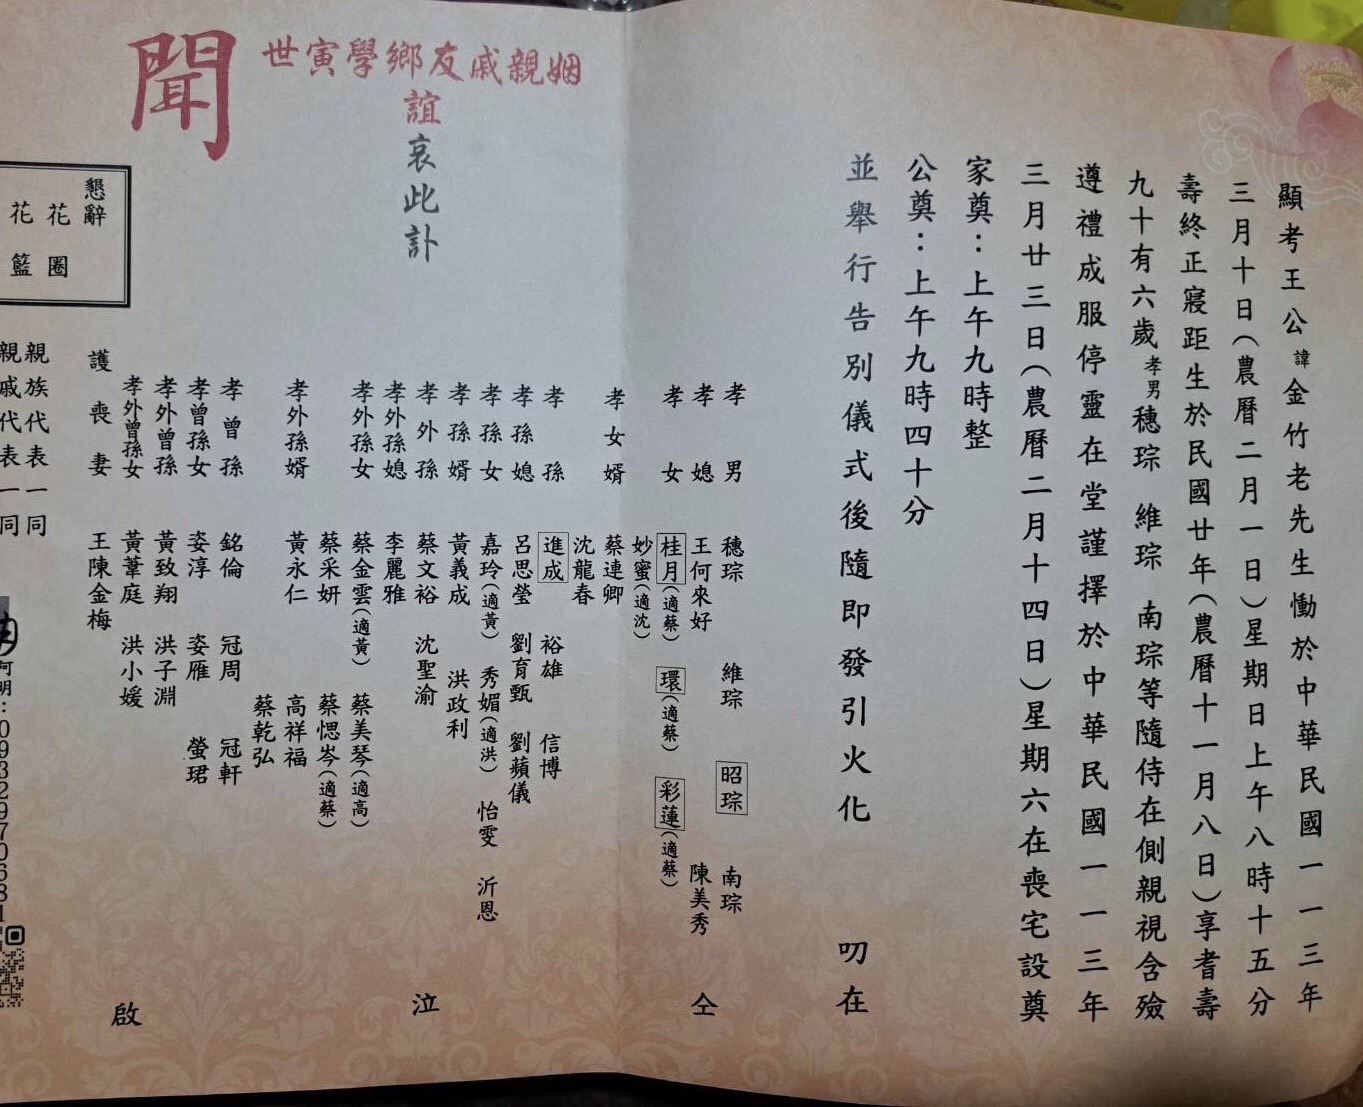 顯考王公諱金竹老先生慟於中華民國一一三年
三月十日(農曆二月一日)星期日上午八時十五分
壽終正寢距生於民國廿年(農曆十一月八日)享耆壽
九十有六歲孝男穗琮 維琮 南琮等隨侍在側親視含殮
遵禮成服停靈在堂謹擇於中華民國一一三年
三月廿三日(農曆二月十四日)星期六在喪宅設奠
家奠：上午九時整
公奠：上午九時四十分
並舉行告別儀式後隨即發引火化 叨在
姻親戚友鄉學寅世
誼哀此訃
聞
孝男 穗琮 維琮 昭琮 南琮
孝媳 王何來好 陳美秀
孝女 桂月(適蔡) 環(適蔡) 彩蓮(適蔡)
妙蜜(適沈)
孝女婿 蔡連卿
沈龍春
孝孫 進成 裕雄 信博
孝孫媳 呂思瑩 劉育甄 劉蘋儀
孝孫女 嘉玲(適黃) 秀媚(適洪) 怡雯 沂恩
孝孫婿 黃義成 洪政利
孝外孫 蔡文裕 沈聖渝
孝外孫媳 李麗雅
孝外孫女 蔡金雲(適黃) 蔡美琴(適高)
蔡采妍 蔡愢岑(適蔡)
孝外孫婿 黃永仁 高祥福
蔡乾弘
孝曾孫 銘倫 冠周 冠軒
孝曾孫女 姿淳 姿雁 螢珺
孝外曾孫 黃致翔 洪子淵
孝外曾孫女 黃葦庭 洪小媛
護喪妻 王陳金梅
仝
泣
啟
懇辭
花圈
花籃
親族代表一同
親戚代表一同
阿明：0932970681